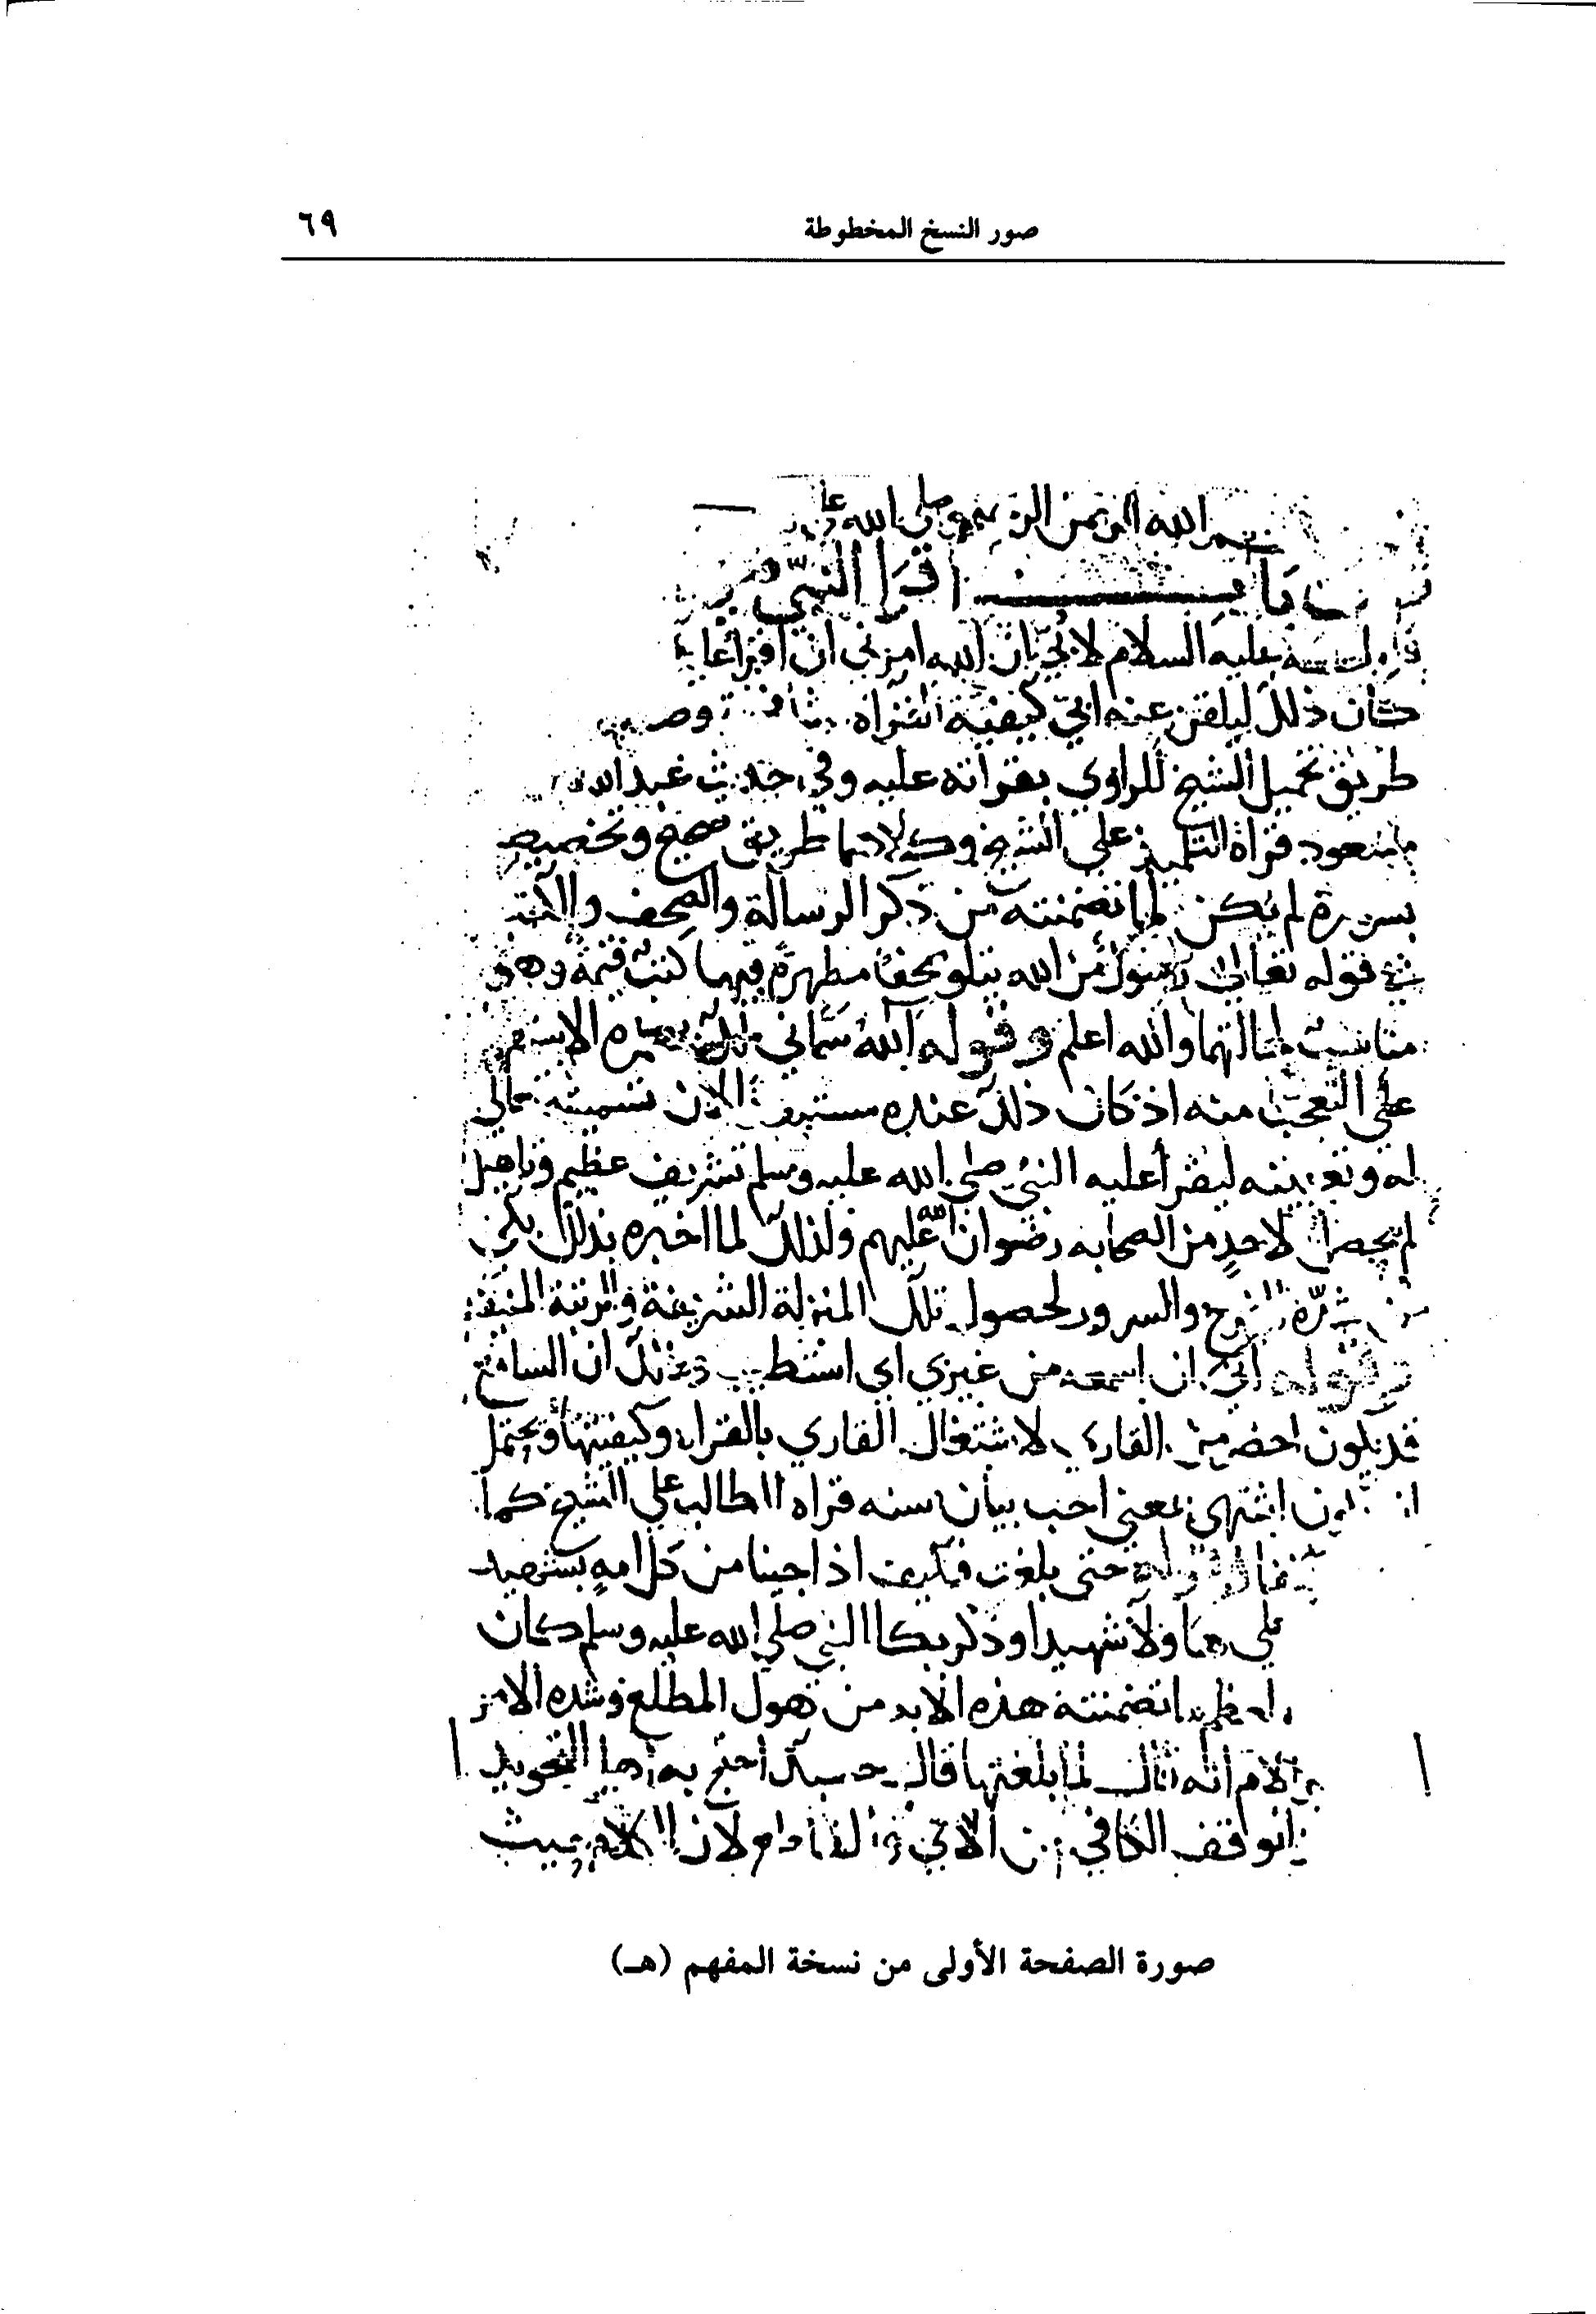 صور النسخ المخطوطة ٦٩
الله الرحمن الرحيم وصلى الله
باب اقرا النبي
عليه السلام لابي ان الله امرني ان اقرا
كان ذلك ليلقن عنه ابي كيفية القراه
طريق تحميل الشيخ للراوي بقراته عليه وفي حديث عبدالله
مسعود قراة التلميذ علي الشيخ وكلاهما طريق صحيح وتخصيص
بسورة لم يكن لما تضمنته من ذكر الرسالة والصحف والكتب
في قوله تعالى رسول من الله يتلو صحفا مطهرة فيها كتب قيمة وهذا
مناسب لحالهما والله اعلم وقوله آلله سماني لك
علي التعجب منه اذ كان ذلك عنده لان تسميته تعالى
له وتعيينه ليقرأ عليه النبي صلى الله عليه وسلم تشريف عظيم وتاهيل
لم يحصل لاحد من الصحابه رضوان الله عليهم ولذلك لما اخبره بذلك بكى
من شدة الفرح والسرور لحصول تلك المنزلة الشريفة والرتبة المنيفة
وقوله اني ان اسمعه من غيري اي استطيب ذلك ان السامع
قد يكون احضر من القاري لاشتغال القاري بالقراه وكيفيتها ويحتمل
ان يكون اشتهي بمعنى احب بيان سنه قراه الطالب علي الشيخ كما
حتى بلغت فكيف اذا جينا من كل امه بشهيد
علي هاولآ شهيدا وذكر بكا النبي صلى الله عليه وسلم كان
تضمنته هذه الايه من هول المطلع وشده الامر
لما بلغتها قال حسبك احتج به اهل التجويد
الوقف الكافي
صورة الصفحة الأولى من نسخة المفهم (هـ)